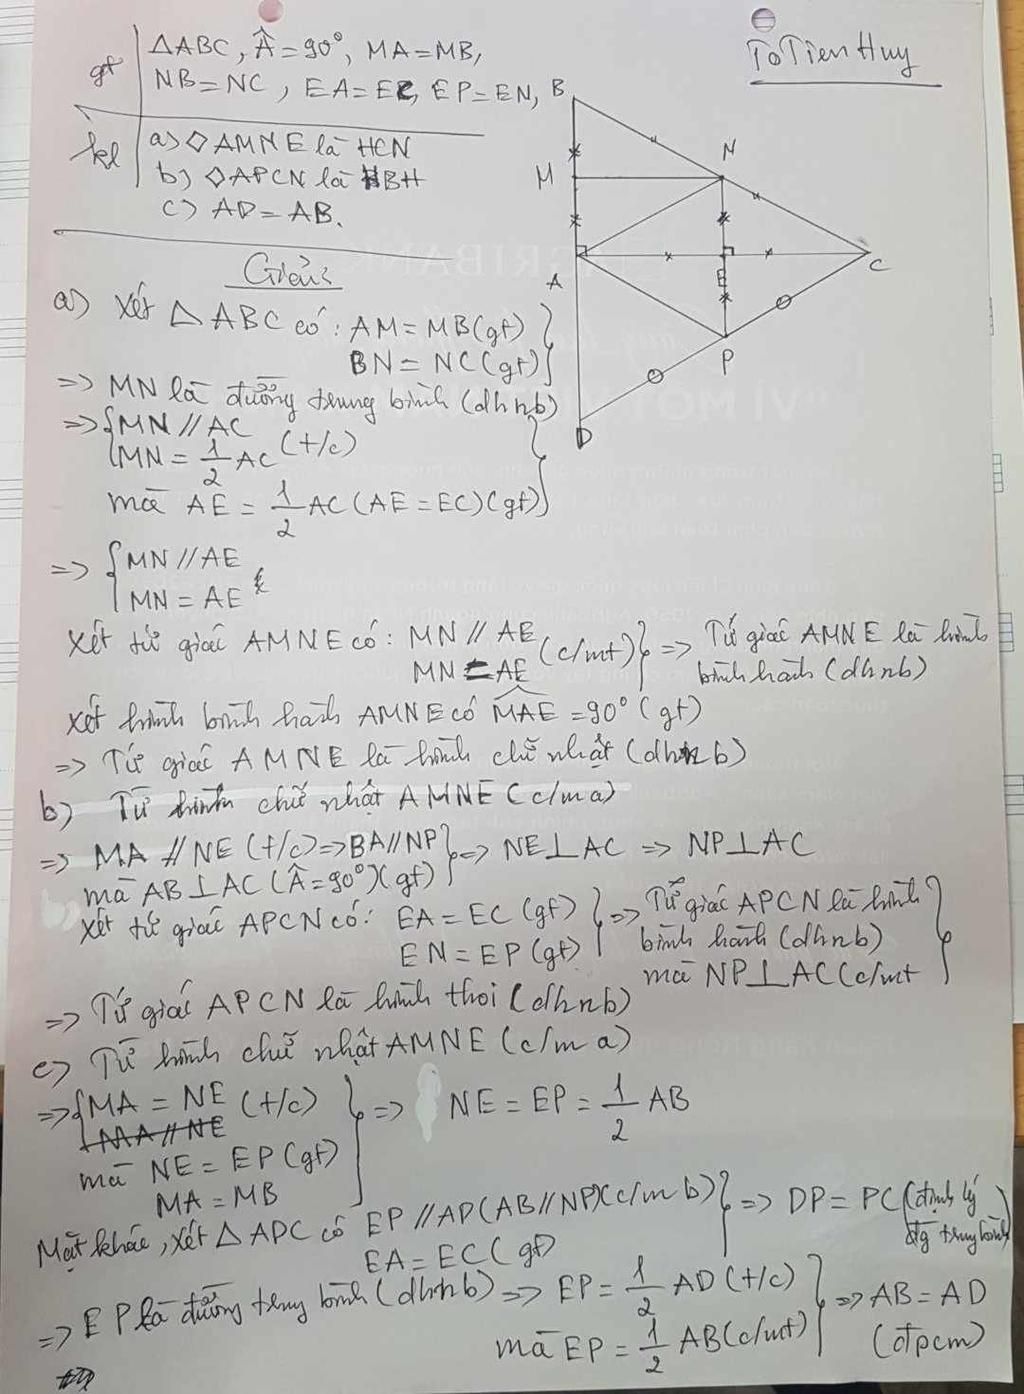 Tô Tiến Huy
gt
ΔABC, Â = 90°, MA = MB,
NB = NC, EA = EC, EP = EN,
kl
a) ◇AMNE là HCN
b) ◇APCN là HBH
c) AD = AB.
B
M
N
A
E
C
P
D
Giải:
a) Xét ΔABC có: AM = MB (gt)
BN = NC (gt)
=> MN là đường trung bình (dhnb)
=> MN // AC
MN = 1/2 AC (t/c)
mà AE = 1/2 AC (AE = EC) (gt)
=> MN // AE
MN = AE
Xét tứ giác AMNE có: MN // AE (c/mt) => Tứ giác AMNE là hình
MN = AE bình hành (dhnb)
Xét hình bình hành AMNE có MAE = 90° (gt)
=> Tứ giác AMNE là hình chữ nhật (dhnb)
b) Từ hình chữ nhật AMNE (c/m a)
=> MA // NE (t/c) => BA // NP => NE ⊥ AC => NP ⊥ AC
mà AB ⊥ AC (Â = 90°) (gt)
Xét tứ giác APCN có: EA = EC (gt) => Tứ giác APCN là hình
EN = EP (gt) bình hành (dhnb)
mà NP ⊥ AC (c/mt
=> Tứ giác APCN là hình thoi (dhnb)
c) Từ hình chữ nhật AMNE (c/m a)
=> MA = NE (t/c) => NE = EP = 1/2 AB
MA // NE
mà NE = EP (gt)
MA = MB
Mặt khác, xét ΔAPC có EP // AP (AB // NP) (c/m b) => DP = PC (định lý
EA = EC (gt) đg trung bình)
=> EP là đường trung bình (dhnb) => EP = 1/2 AD (t/c) => AB = AD
mà EP = 1/2 AB (c/mt) (đpcm)